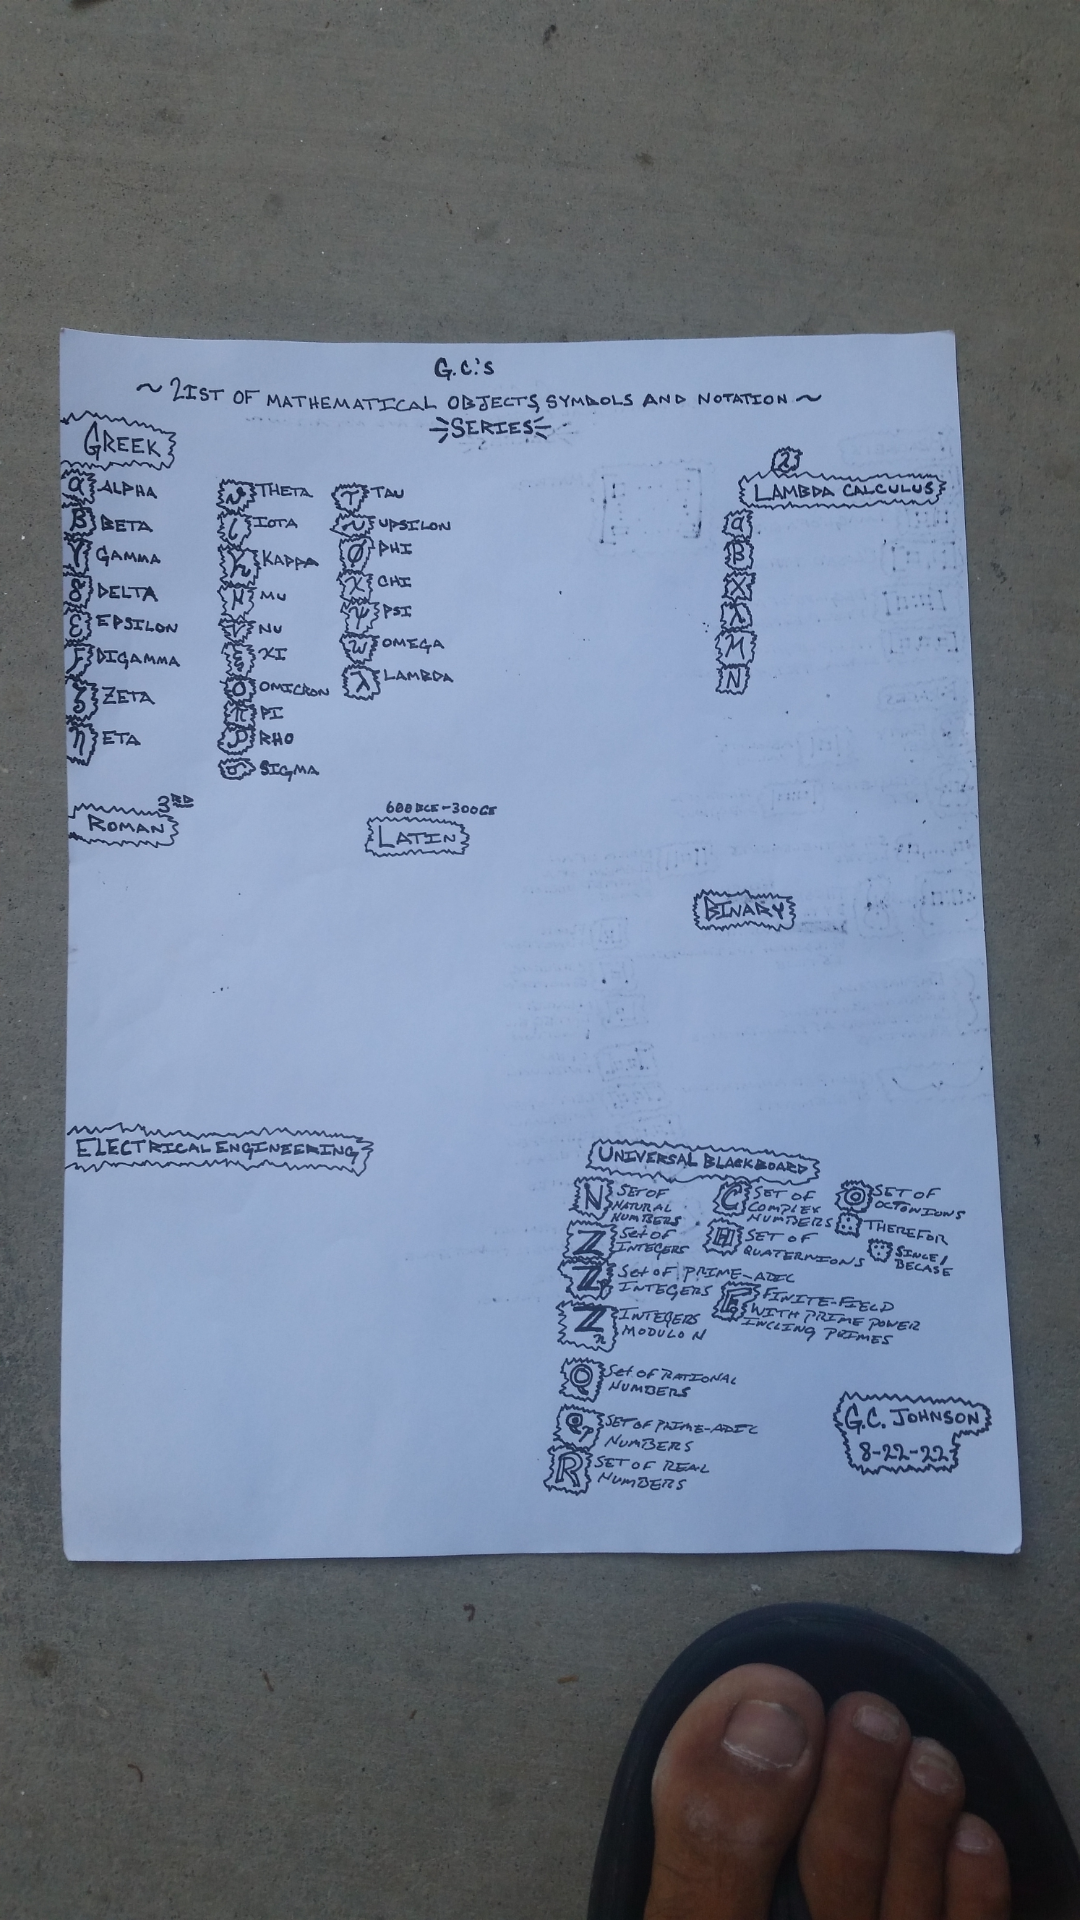 G.C.'s
~ LIST OF MATHEMATICAL OBJECTS, SYMBOLS AND NOTATION ~
SERIES
GREEK
α ALPHA
β BETA
γ GAMMA
δ DELTA
ε EPSILON
ϝ DIGAMMA
ζ ZETA
η ETA
THETA
ι IOTA
κ KAPPA
μ MU
ν NU
ξ XI
ο OMICRON
π PI
ρ RHO
σ SIGMA
τ TAU
υ UPSILON
φ PHI
χ CHI
ψ PSI
ω OMEGA
λ LAMBDA
LAMBDA CALCULUS
α
β
X
λ
M
N
3RD
ROMAN
600BCE-300CE
LATIN
BINARY
ELECTRICAL ENGINEERING
UNIVERSAL BLACKBOARD
ℕ SET OF
NATURAL
NUMBERS
ℤ SET OF
INTEGERS
ℤp SET OF PRIME-ADIC
INTEGERS
ℤn INTEGERS
MODULO N
ℚ SET OF RATIONAL
NUMBERS
ℚp SET OF PRIME-ADIC
NUMBERS
ℝ SET OF REAL
NUMBERS
ℂ SET OF
COMPLEX
NUMBERS
ℍ SET OF
QUATERNIONS
FINITE-FIELD
WITH PRIME POWER
INCLING PRIMES
𝕆 SET OF
OCTONIONS
∴ THEREFOR
∵ SINCE/
BECASE
G.C. JOHNSON
8-22-22